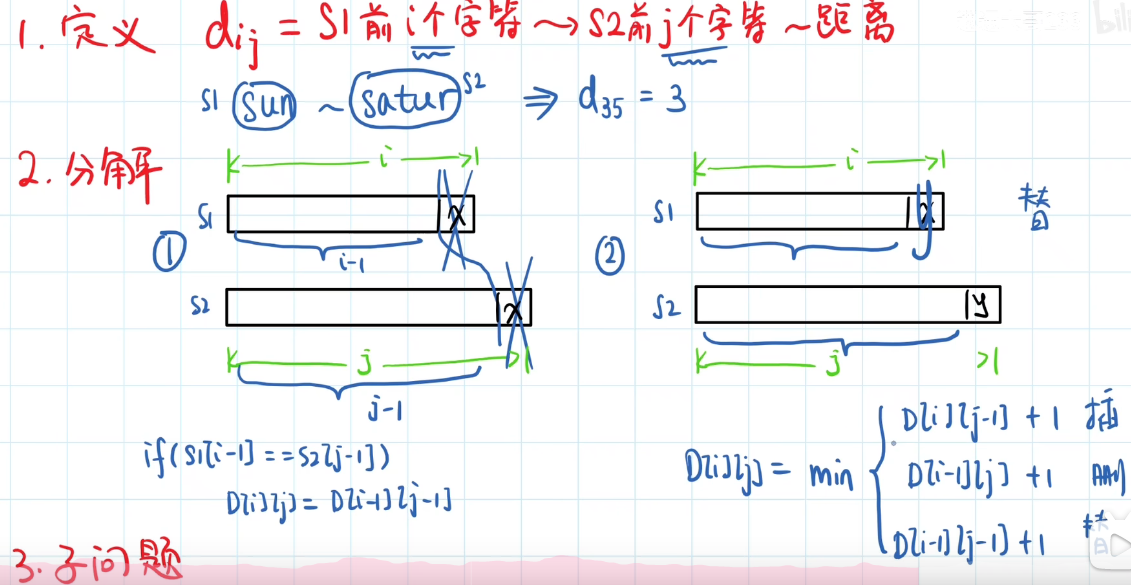 1. 定义 dij = S1前i个字符 ~> S2前j个字符 ~距离
S1 sun ~ satur S2 ⇒ d35 = 3
2. 分解
i
S1 x
①
i-1
S2 x
j
j-1
if(S1[i-1] == S2[j-1])
D[i][j] = D[i-1][j-1]
i
S1 x
替
②
S2 y
j
D[i][j] = min
D[i][j-1] + 1 插
D[i-1][j] + 1 删
D[i-1][j-1] + 1 替
3. 子问题
bili